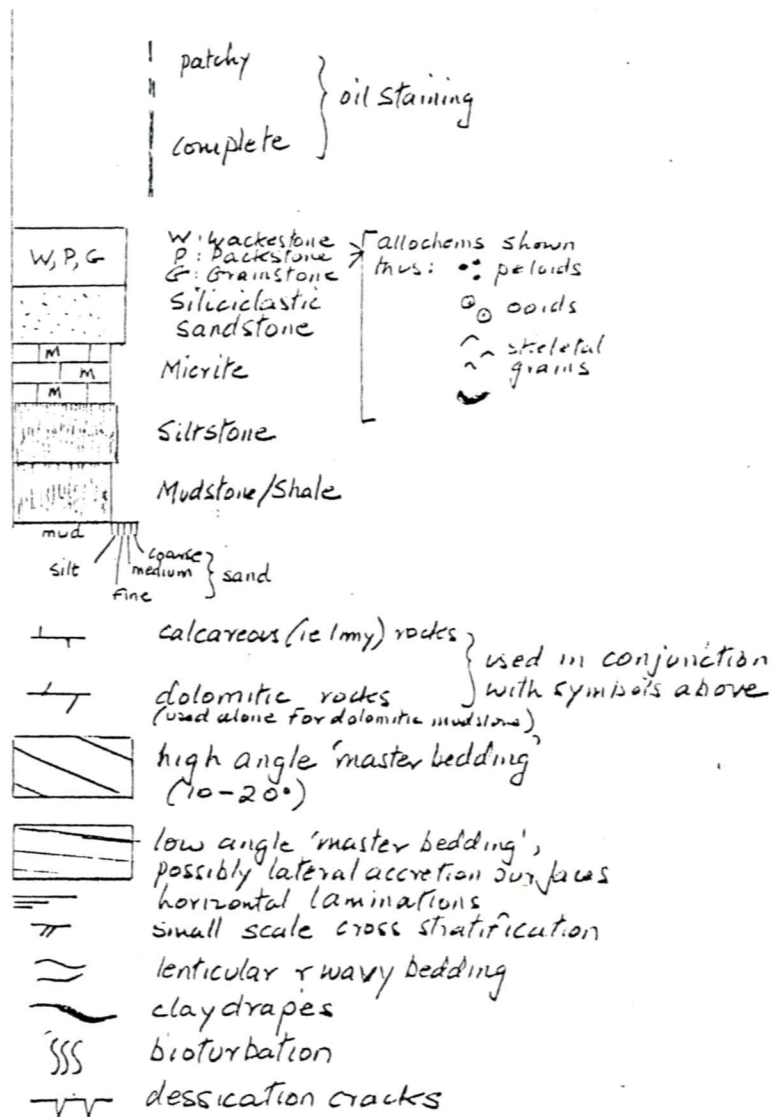 patchy
oil staining
complete
W, P, G
W: Wackestone
P: Packstone
G: Grainstone
allochems shown
thus: peloids
ooids
skeletal
grains
Siliciclastic
sandstone
M
M
M
Micrite
Siltstone
Mudstone/Shale
mud
silt
fine
medium
coarse
sand
calcareous (ie limy) rocks
dolomitic rocks
(used alone for dolomitic mudstone)
used in conjunction
with symbols above
high angle 'master bedding'
(10-20°)
low angle 'master bedding',
possibly lateral accretion surfaces
horizontal laminations
small scale cross stratification
lenticular r wavy bedding
clay drapes
bioturbation
dessication cracks